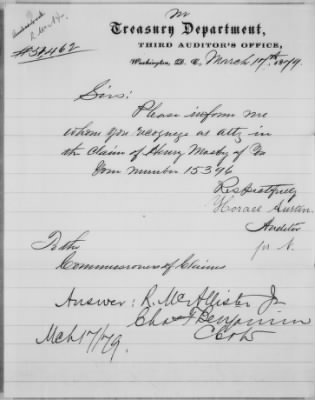 M
R. McA. Jr.
#50462
Treasury Department,
THIRD AUDITOR'S OFFICE,
Washington, D. C., March 17th, 1879.
Sirs:
Please inform me
whom you recognize as atty in
the Claim of Henry Mosby of Va
Com number 15396
Respectfully
Horace Austin
Auditor
To the
Commissioners of Claims
Answer: R. McAllister Jr
Chas F Benjamin
Mch 17/79.